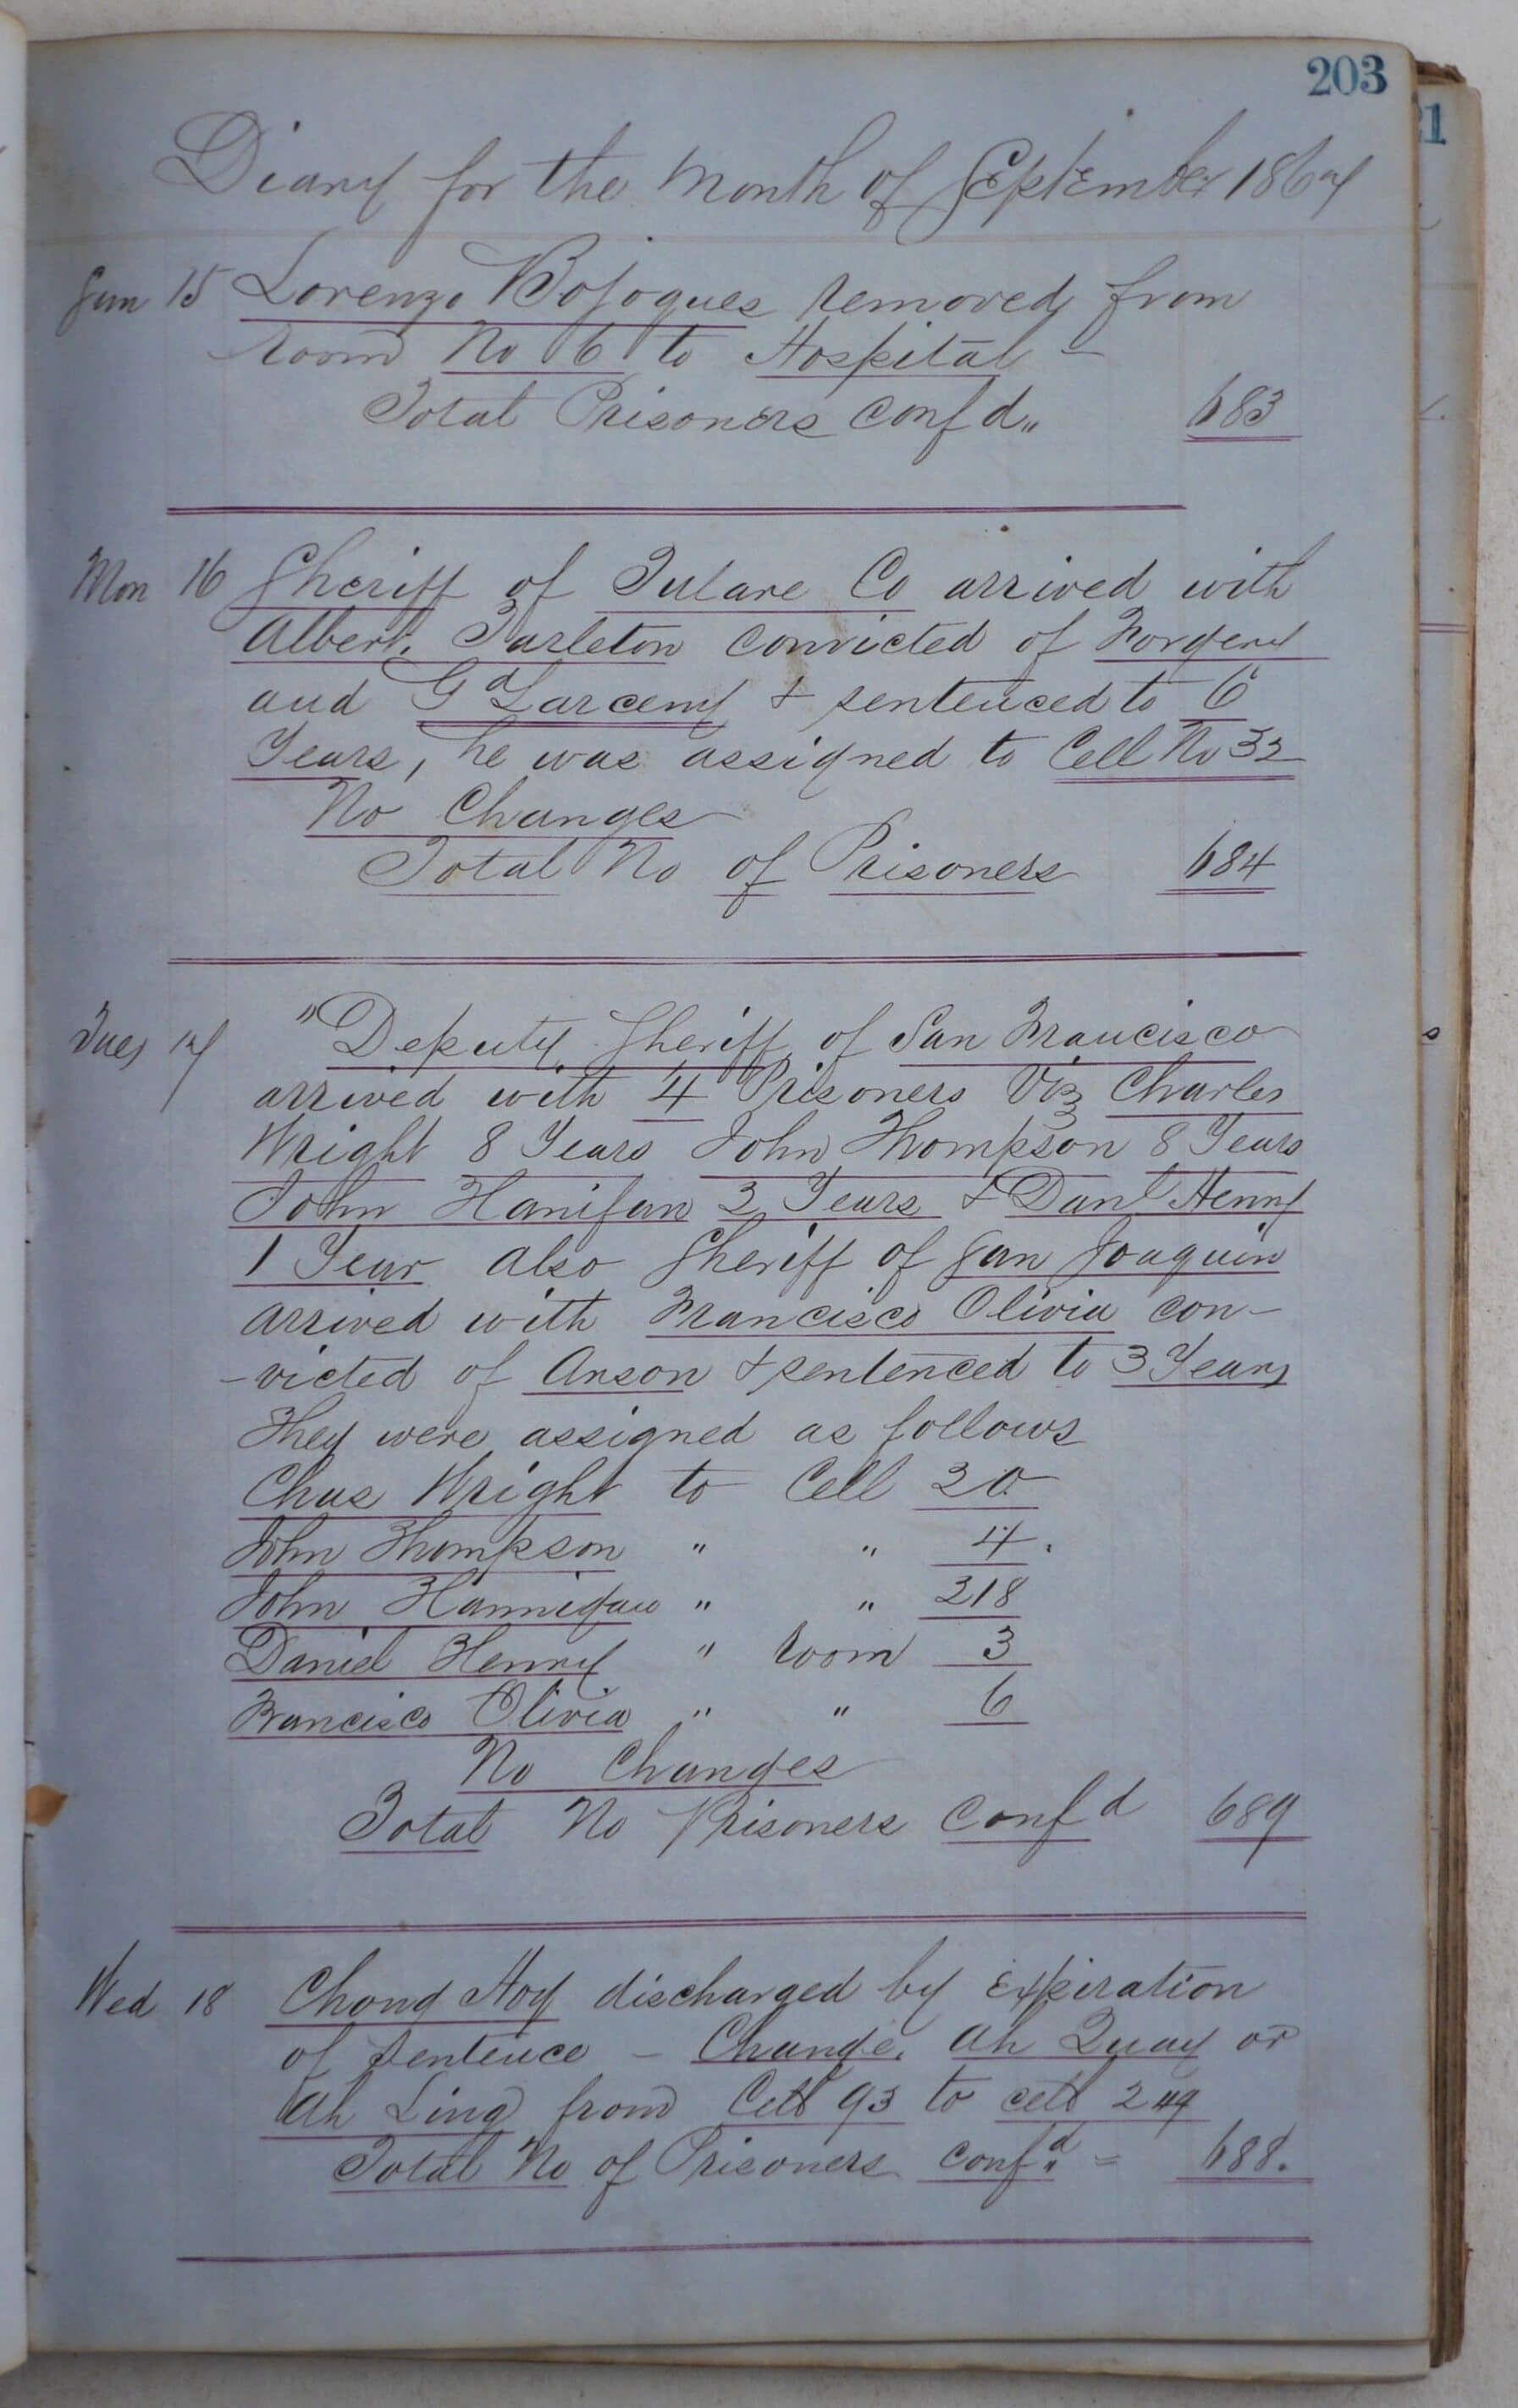 203
Diary for the Month of September 1867
Sun 15 Lorenzo Bojoques removed from
room No 6 to Hospital —
Total Prisoners Conf d„ 683
Mon 16 Sheriff of Tulare Co arrived with
Albert. Tarleton Convicted of Forgery
and Gd Larceny & sentenced to 6
Years, he was assigned to Cell No 32
No Changes
Total No of Prisoners 684
Tues 17 "Deputy Sheriff of San Francisco
arrived with 4 Prisoners Viz Charles
Wright 8 Years John Thompson 8 Years
John Hanifan 3 Years & Danl Henny
1 Year also Sheriff of San Joaquin
arrived with Francisco Olivia con-
-victed of Arson & sentenced to 3 Years
They were assigned as follows
Chas Wright to Cell 20
John Thompson " " 4.
John Hannifan " " 318
Daniel Henny " room 3
Francisco Olivia " " 6
No Changes
Total No Prisoners Conf d 689
Wed 18 Chong Hoy discharged by Expiration
of Sentence – Change. Ah Quay or
Ah Ling from Cell 93 to cell 249
Total No of Prisoners Confd = 688.
21
s